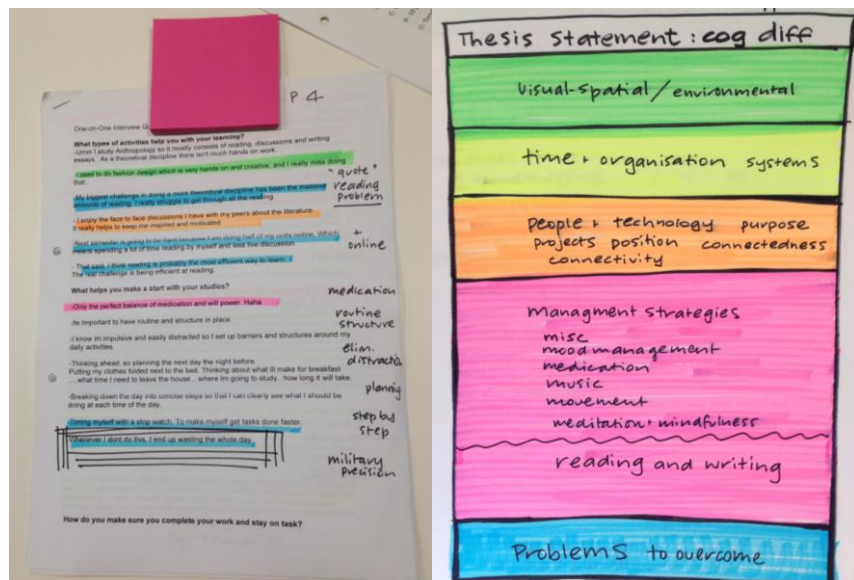 P 4
One-on-One Interview
What types of activities help you with your learning?
-Umm I study Anthropology so it mostly consists of reading, discussions and writing
essays. As a theoretical discipline there isn't much hands on work.
-I used to do fashion design which is very hands on and creative, and I really miss doing
that..
-My biggest challenge in doing a more theoretical discipline has been the massive
amounts of reading. I really struggle to get through all the reading.
-I enjoy the face to face discussions I have with my peers about the literature.
It really helps to keep me inspired and motivated.
-Next semester is going to be hard because I am doing half of my units online. Which
means spending a lot of time reading by myself and less five discussion.
-That said, I think reading is probably the most efficient way to learn.
The real challenge is being efficient at reading.
What helps you make a start with your studies?
-Only the perfect balance of medication and will power. Haha
-Its important to have routine and structure in place.
-I know im impulsive and easily distracted so I set up barriers and structures around my
daily activities.
-Thinking ahead, so planning the next day the night before.
Putting my clothes folded next to the bed. Thinking about what ill make for breakfast
...what time I need to leave the house... where Im going to study.. how long it will take.
-Breaking down the day into concise steps so that I can clearly see what I should be
doing at each time of the day.
-Timing myself with a stop watch. To make myself get tasks done faster.
-Whenever I dont do this, I end up wasting the whole day.
How do you make sure you complete your work and stay on task?
"quote"
reading
problem
+
online
medication
routine
structure
elim.
distractio
planning
step by
step
military
precision
Thesis Statement: cog diff
visual-spatial / environmental
time + organisation systems
people + technology purpose
projects position connectedness
connectivity
Managment strategies
misc
mood management
medication
music
movement
meditation + mindfulness
reading and writing
Problems to overcome